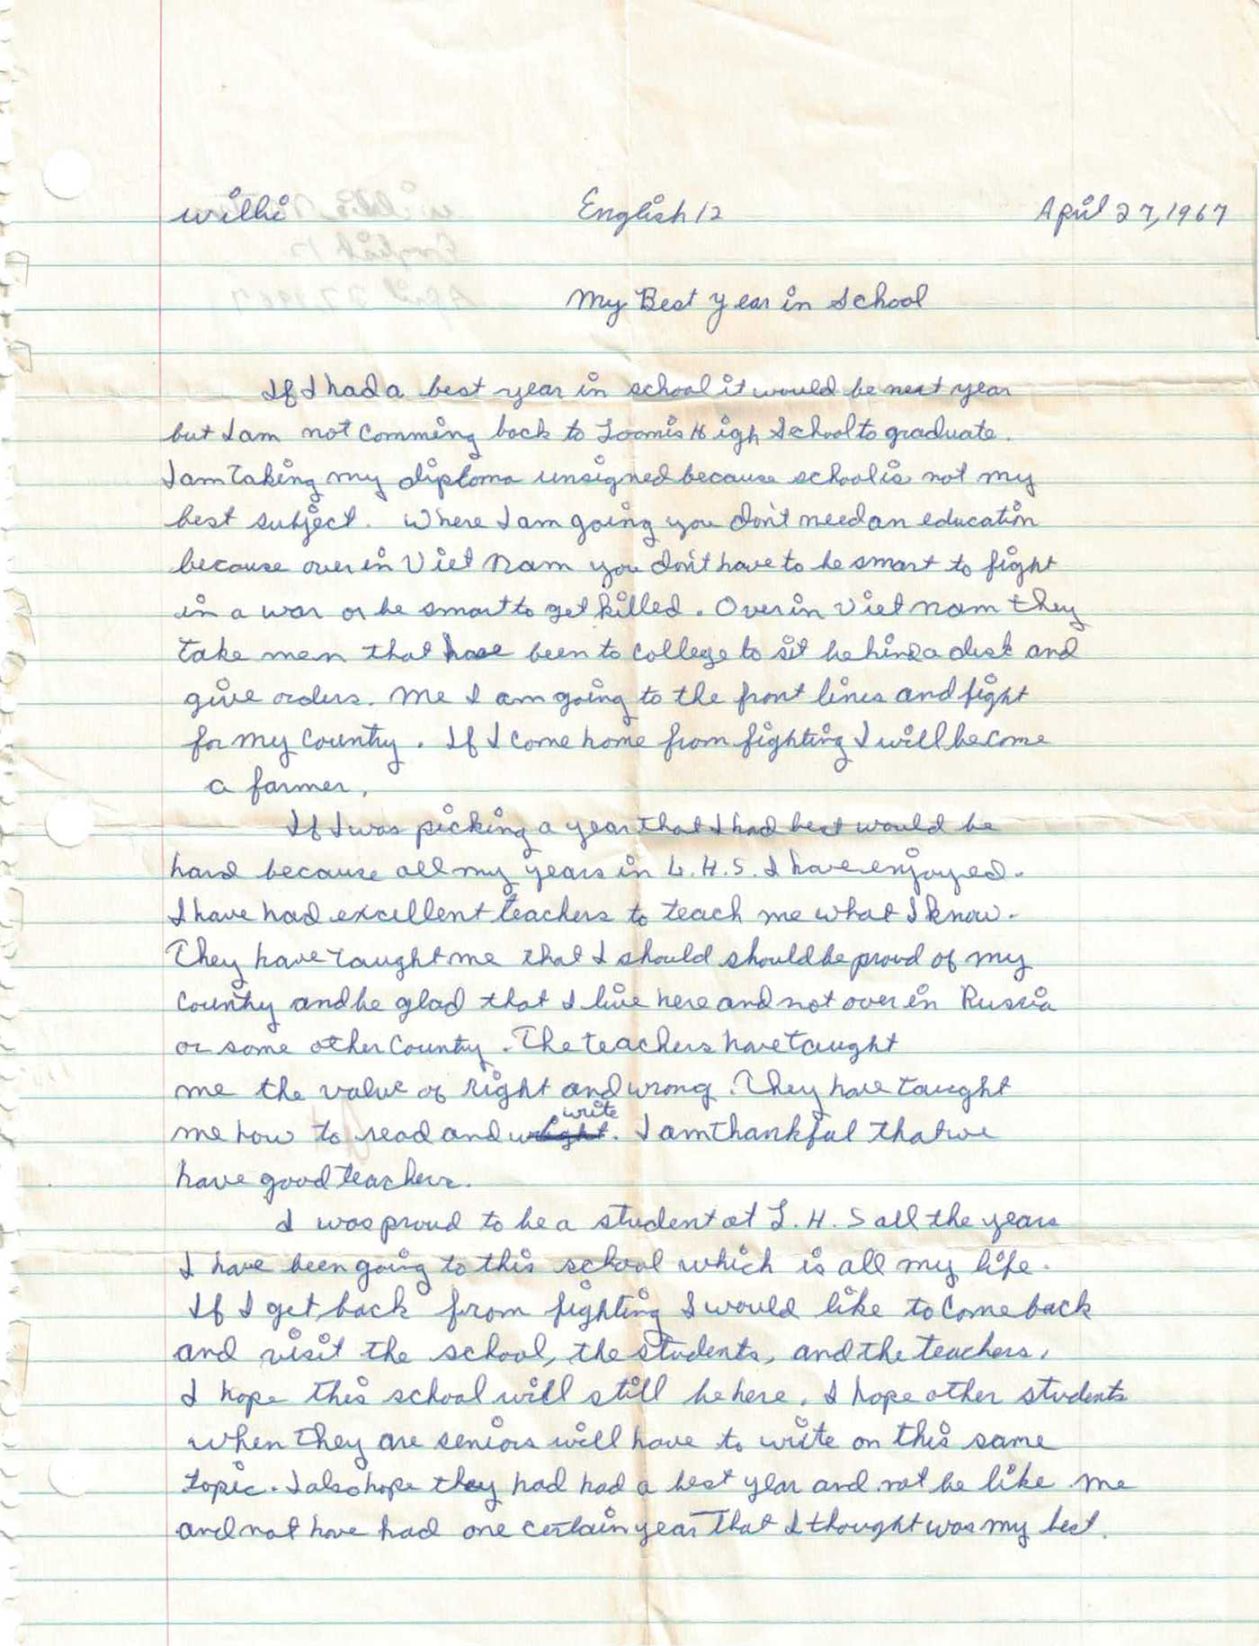 Willi English 12 April 27, 1967
My Best Year in School
If I had a best year in school it would be next year
but I am not comming back to Loomis High School to graduate.
I am taking my diploma unsigned because school is not my
best subject. Where I am going you don't need an education
because over in Viet Nam you don't have to be smart to fight
in a war or be smart to get killed. Over in Viet Nam they
take men that have been to college to sit behind a desk and
give orders. Me I am going to the front lines and fight
for my country. If I come home from fighting I will become
a farmer.
If I was picking a year that I had best would be
hard because all my years in L.H.S. I have enjoyed.
I have had excellent teachers to teach me what I know.
They have taught me that I should should be proud of my
country and be glad that I live here and not over in Russia
or some other County. The teachers have taught
me the value of right and wrong. They have taught
me how to read and write. I am thankful that we
have good teachers.
I was proud to be a student at L.H.S all the years
I have been going to this school which is all my life.
If I get back from fighting I would like to come back
and visit the school, the students, and the teachers.
I hope this school will still be here. I hope other students
when they are seniors will have to write on this same
topic. I also hope they had had a best year and not be like me
and not have had one certain year that I thought was my best.